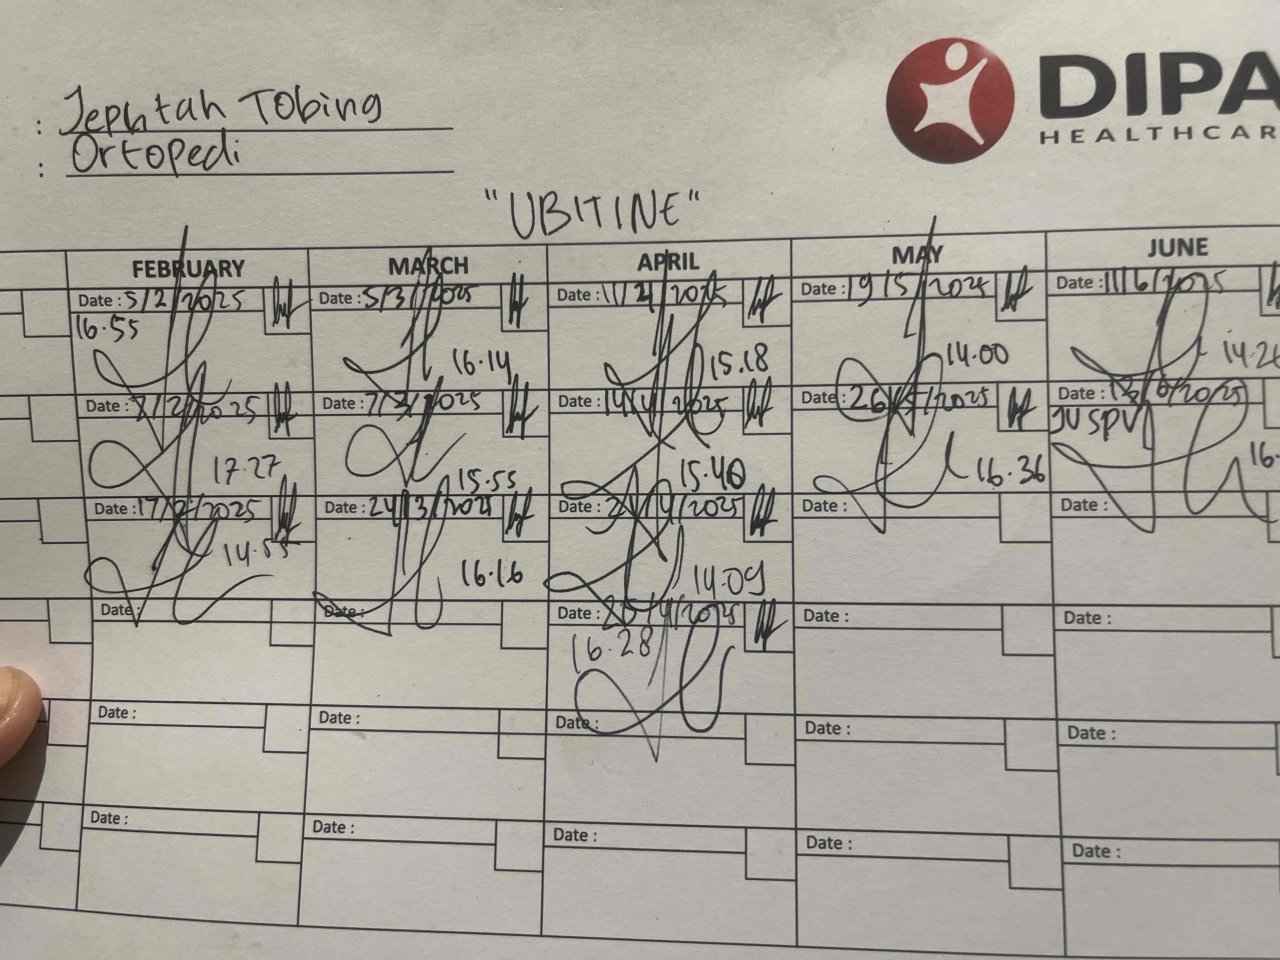 : Jephtah Tobing
: Ortopedi
DIPA
HEALTHCAR
"UBITINE"
FEBRUARY MARCH APRIL MAY JUNE
Date : 5/2/2025 Date : 5/3/2025 Date : 11/4/2025 Date : 19/5/2025 Date : 11/6/2025
16.55 16.14 15.18 14.00 14.26
Date : 7/2/2025 Date : 7/3/2025 Date : 14/4/2025 Date : 26/5/2025 Date : 13/6/2025
JV SPV
17.27 15.55 15.40 16.36 16.
Date : 17/2/2025 Date : 24/3/2025 Date : /4/2025 Date : Date :
14.55 16.16 14.09
Date : Date : Date : 25/4/2025 Date : Date :
16.28
Date : Date : Date : Date : Date :
Date : Date : Date : Date : Date :